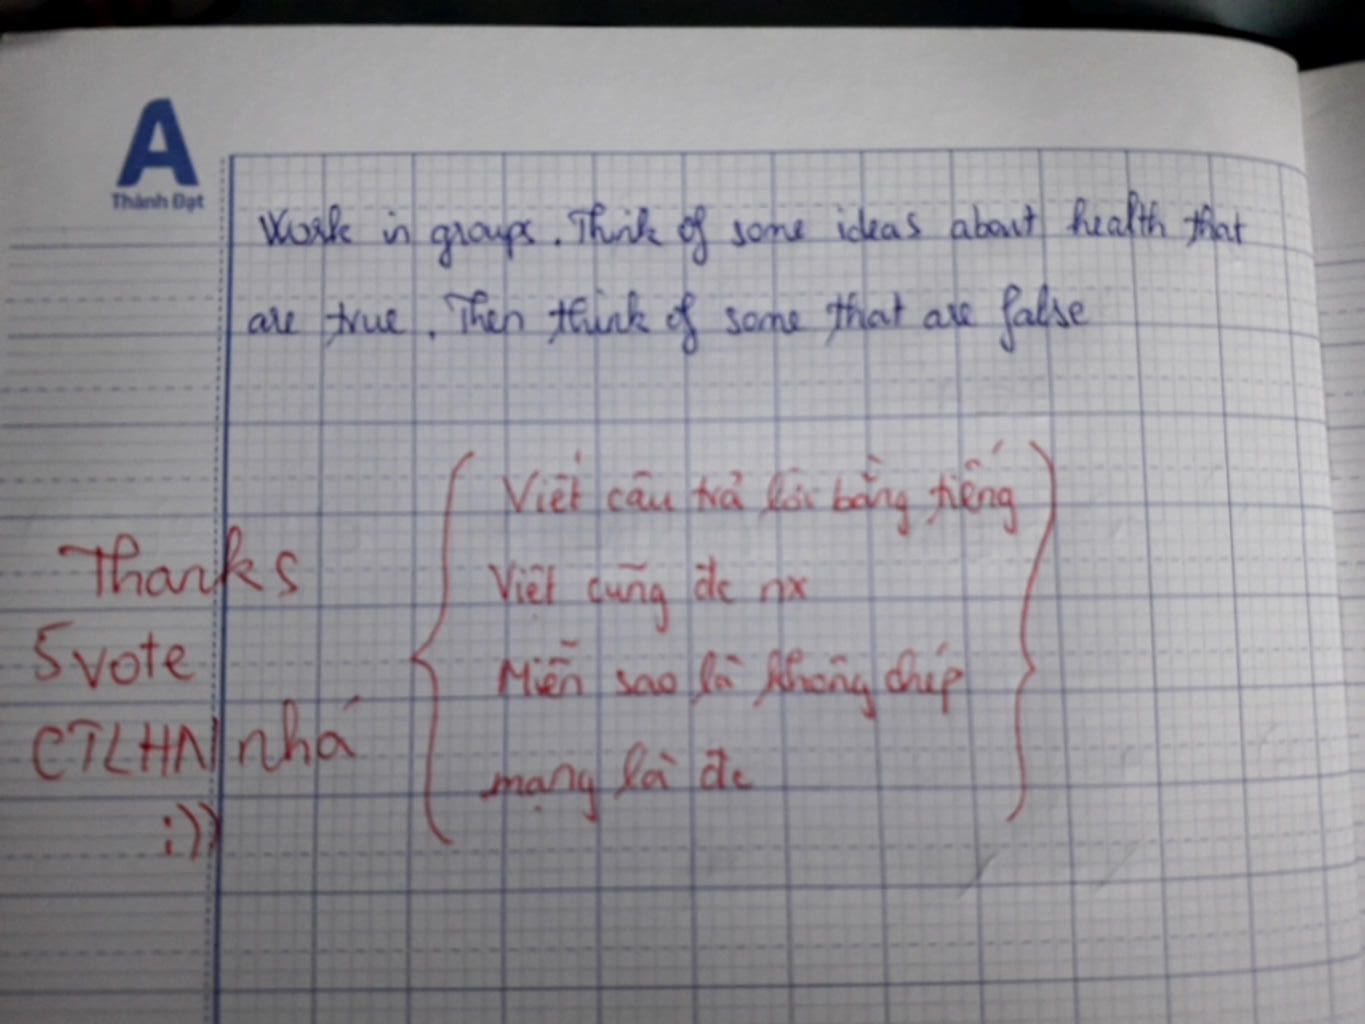 A
Thành Đạt
Work in groups. Think of some ideas about health that
are true. Then think of some that are false
Viết câu trả lời bằng tiếng
Việt cũng đc nx
Miễn sao là không chép
mạng là đc
Thanks
5 vote
CTLHN nhá
:))